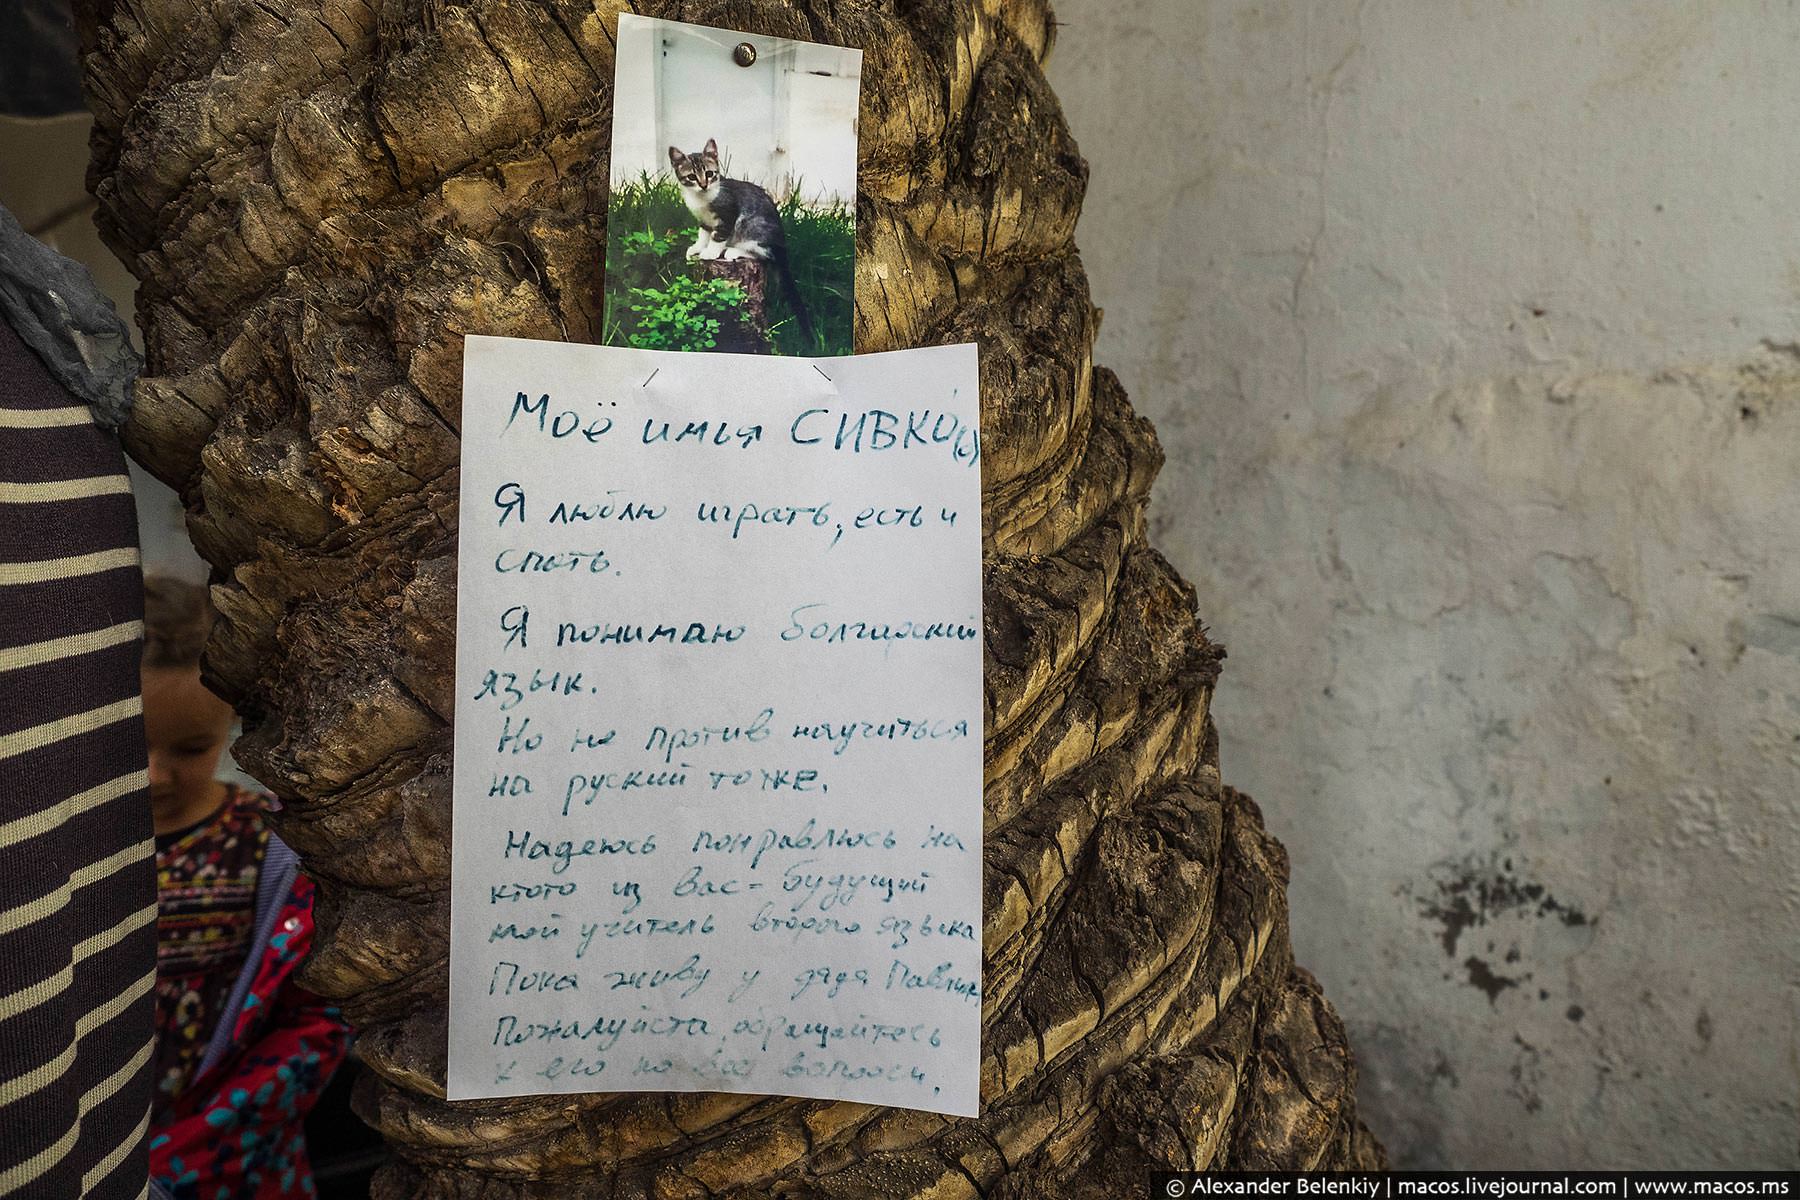 Моё имья СИВКО́(о)
Я люблю играть, есть и
спать.
Я понимаю болгарский
язык.
Но не против научиться
на руский тоже.
Надеюсь понравлюсь на
ктото из вас - будущий
мой учитель второго языка
Пока живу у дядя
Пожалуйста, обращайтесь
к его по все вопроси.
© Alexander Belenkiy | macos.livejournal.com | www.macos.ms